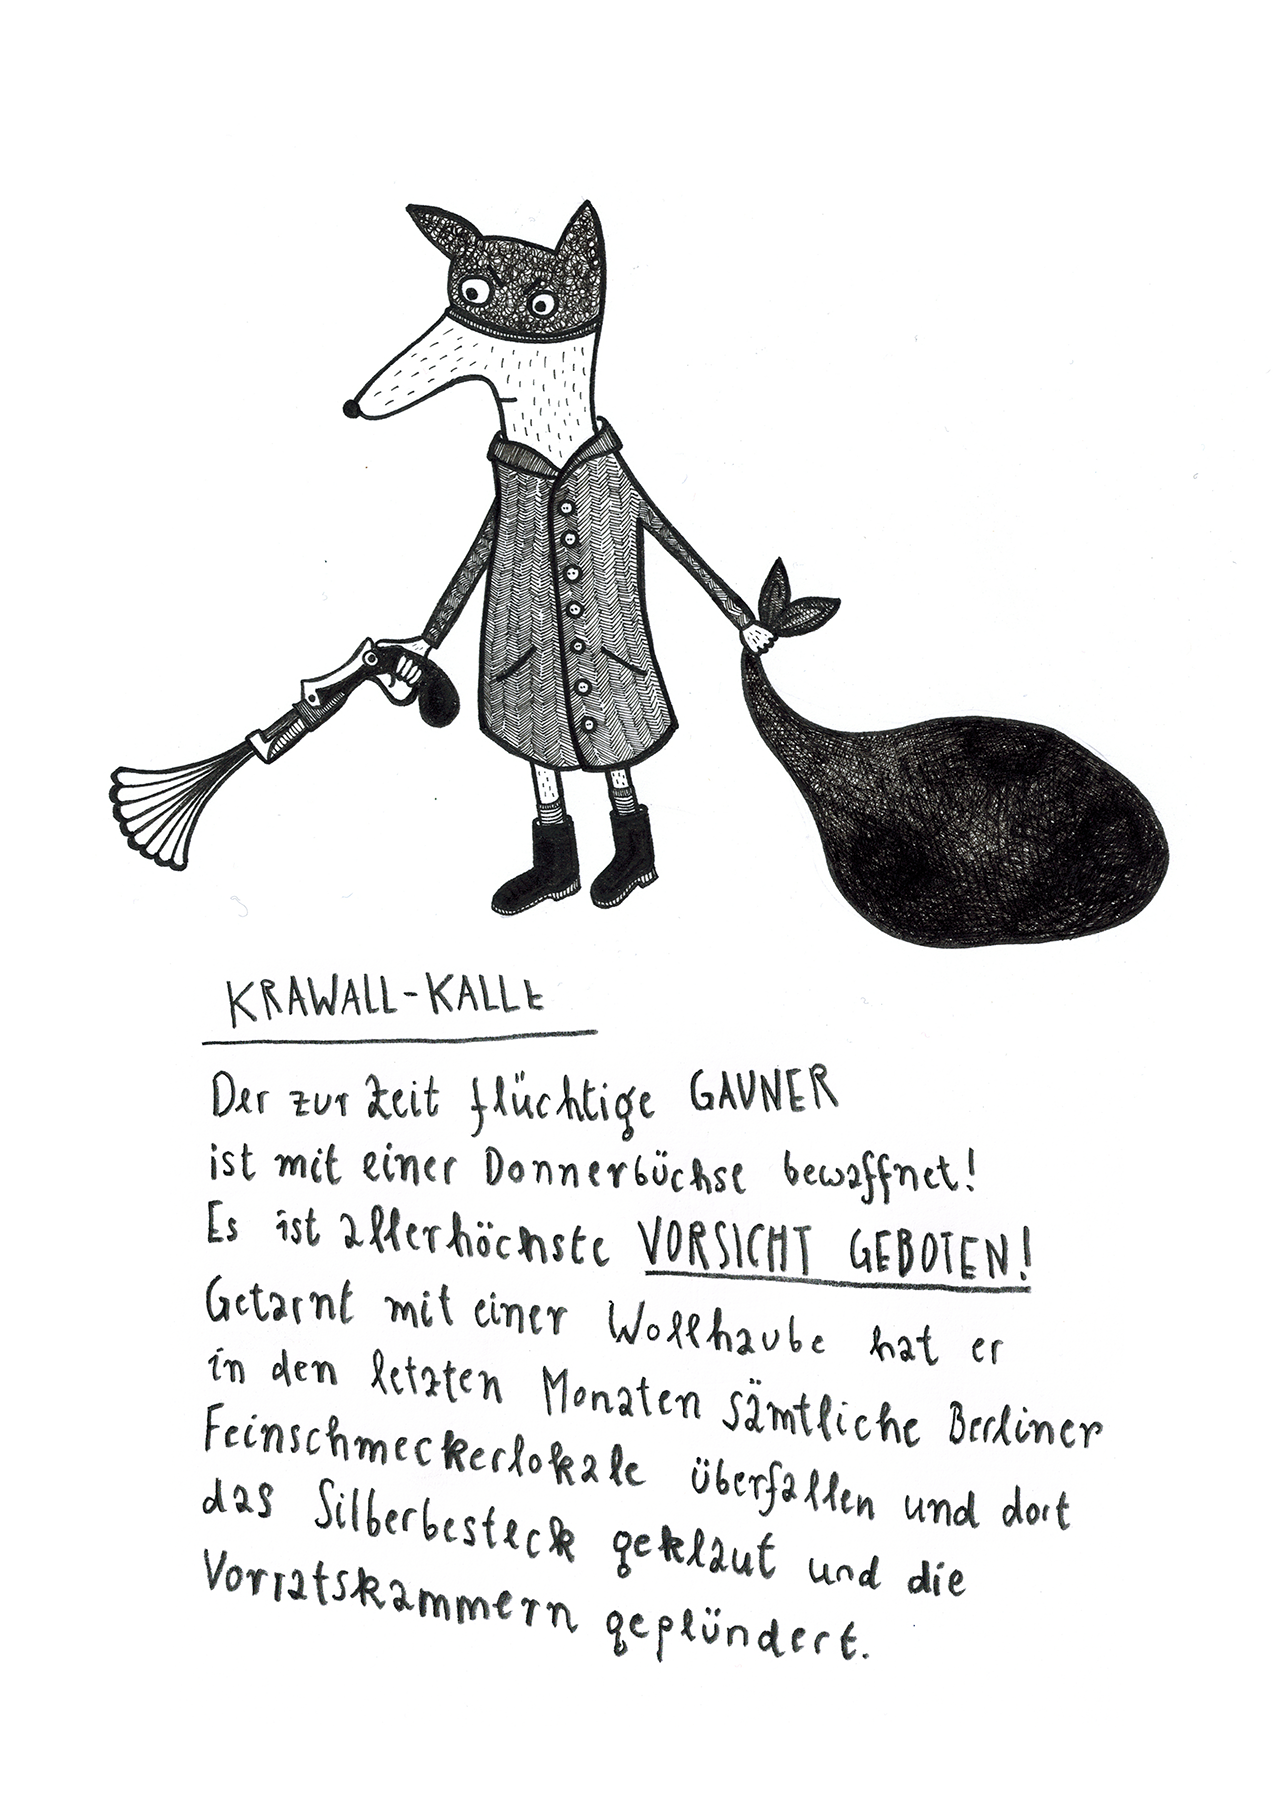 KRAWALL-KALLE
Der zur Zeit flüchtige GAUNER
ist mit einer Donnerbüchse bewaffnet!
Es ist allerhöchste VORSICHT GEBOTEN!
Getarnt mit einer Wollhaube hat er
in den letzten Monaten sämtliche Berliner
Feinschmeckerlokale überfallen und dort
das Silberbesteck geklaut und die
Vorratskammern geplündert.